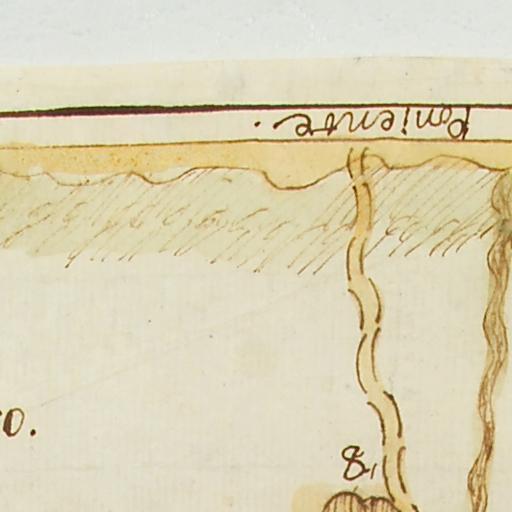 Poniente.
o.
8,